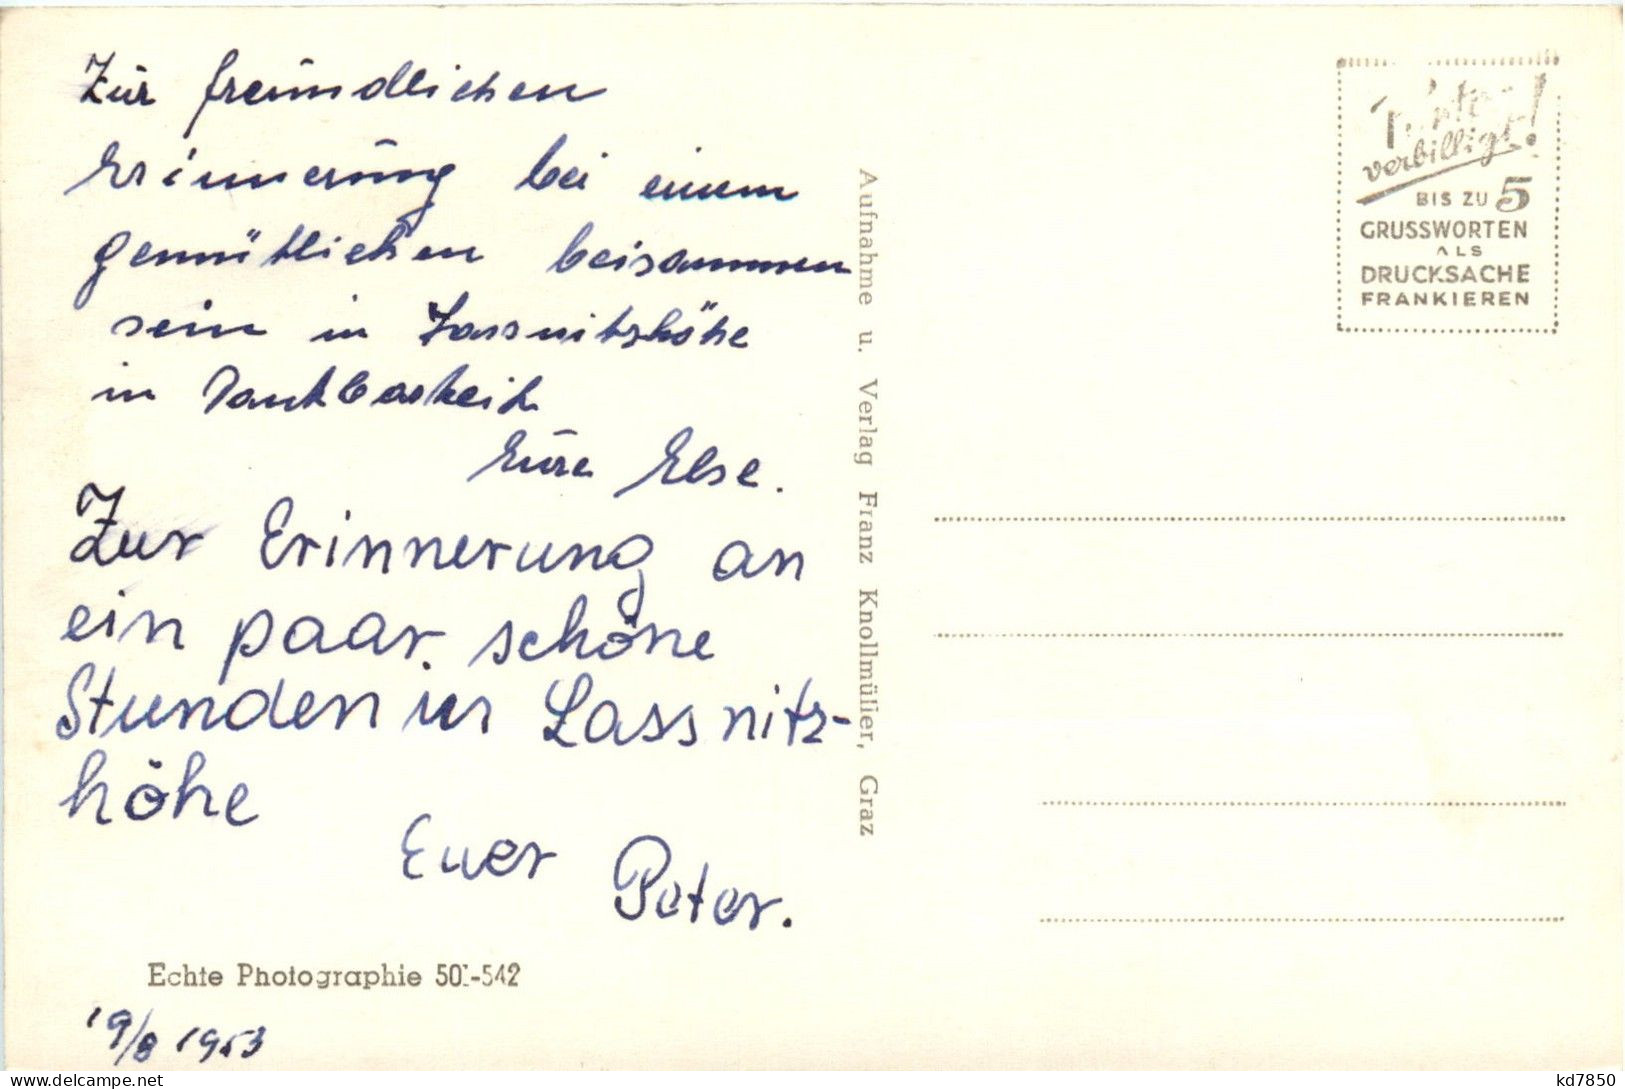 Zur freundlichen
Erinnerung bei einem
gemütlichen beisammen
sein in Lassnitzhöhe
in Dankbarkeit
Eure Else.
Zur Erinnerung an
ein paar schöne
Stunden in Lassnitz-
höhe
Euer Peter.
Echte Photographie
19/8 1953
Aufnahme u. Verlag Franz Knollmüller, Graz
verbilligt!
BIS ZU 5
GRUSSWORTEN
ALS
DRUCKSACHE
FRANKIEREN
kd7850